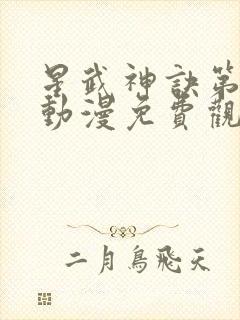 星武神訣第
動漫免費觀
二月鳥飛天